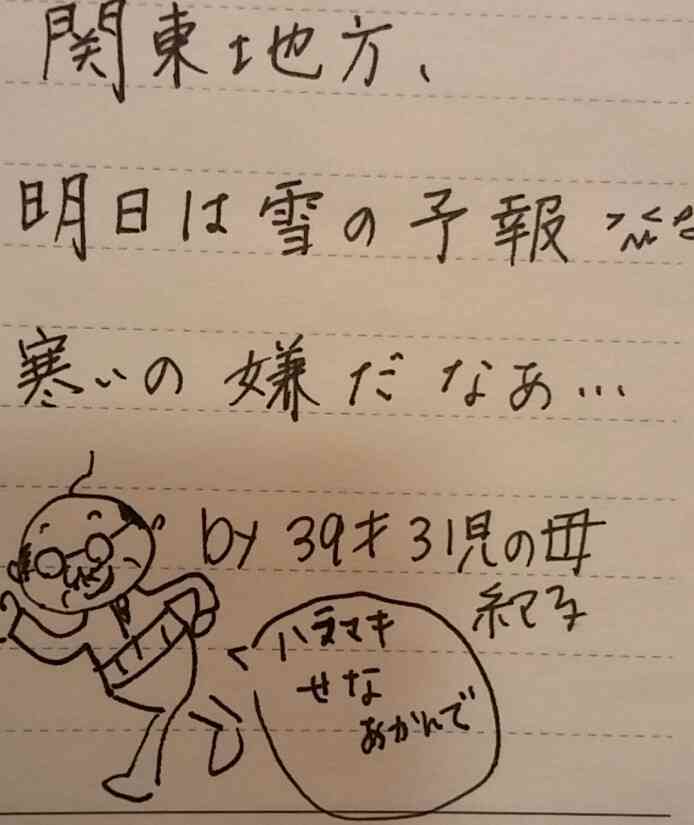 関東地方、
明日は雪の予報
寒いの嫌だなあ…
by 39才 3児の母
紀子
ハラマキ
せな
あかんで